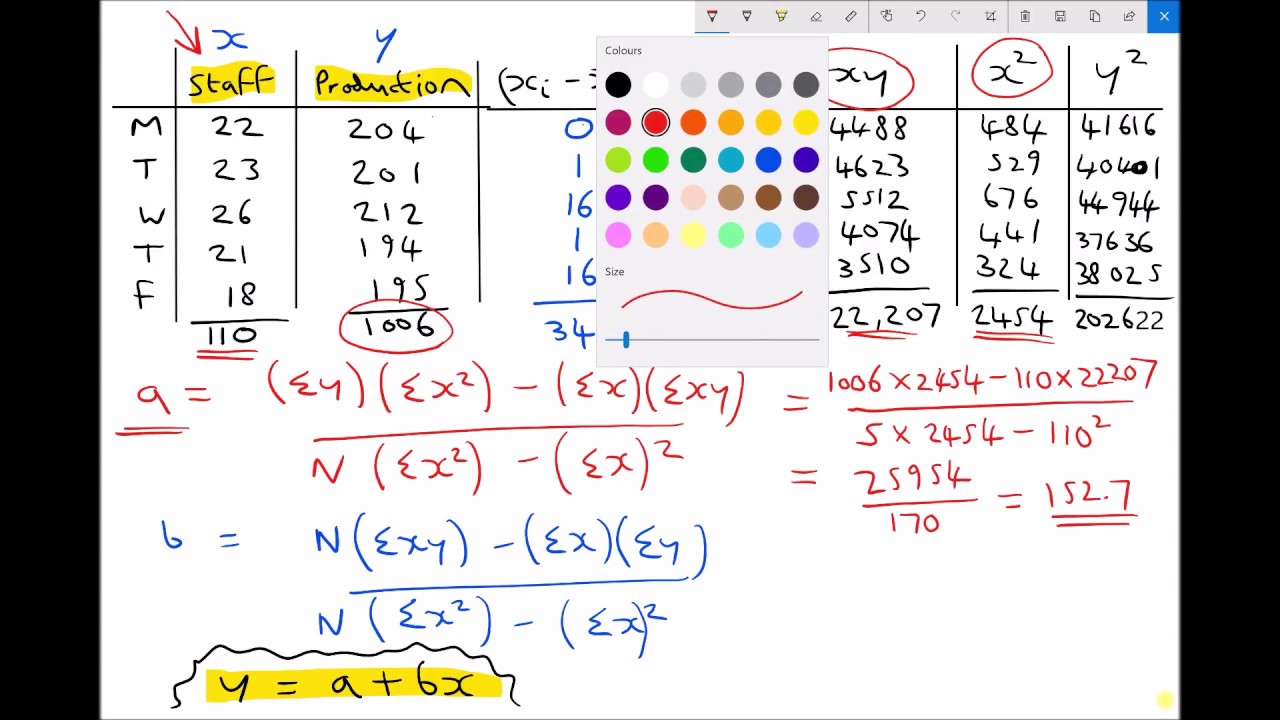 x y
Colours
Staff Production (xi - xy x² y²
M 22 204 0 4488 484 41616
T 23 201 1 4623 529 40401
W 26 212 16 5512 676 44944
T 21 194 1 4074 441 37636
F 18 195 16 3510 324 38025
Size
110 1006 34 22,207 2454 202622
a = (Σy)(Σx²) - (Σx)(Σxy) = 1006 x 2454 - 110 x 22207
N (Σx²) - (Σx)² 5 x 2454 - 110²
= 25954 = 152.7
170
b = N(Σxy) - (Σx)(Σy)
N (Σx²) - (Σx)²
y = a + bx